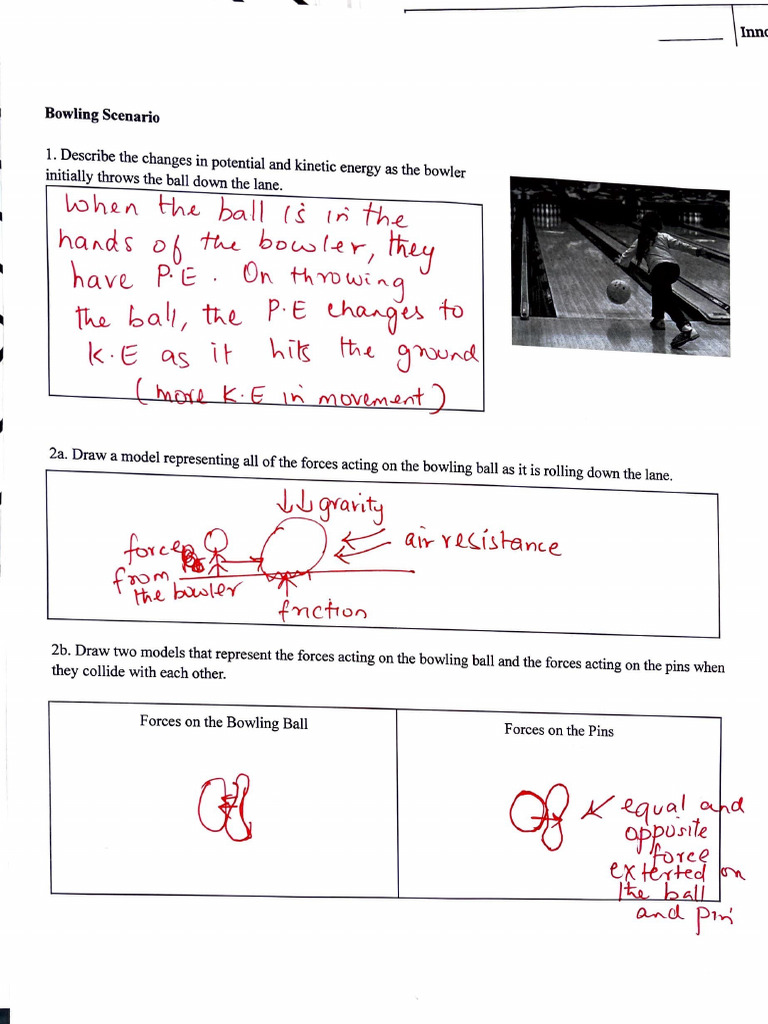 Inno
Bowling Scenario
1. Describe the changes in potential and kinetic energy as the bowler
initially throws the ball down the lane.
When the ball is in the
hands of the bowler, they
have P.E. On throwing
the ball, the P.E changes to
K.E as it hits the ground
(more K.E in movement)
2a. Draw a model representing all of the forces acting on the bowling ball as it is rolling down the lane.
↓↓gravity
air resistance
force
from
the bowler
friction
2b. Draw two models that represent the forces acting on the bowling ball and the forces acting on the pins when
they collide with each other.
Forces on the Bowling Ball
Forces on the Pins
equal and
opposite
force
exterted on
the ball
and pin